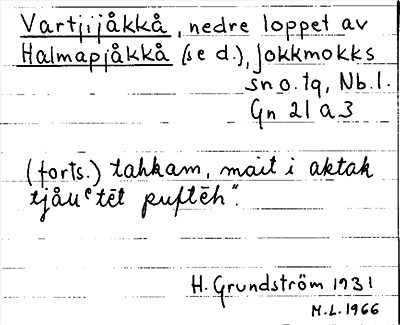 Vartjijåkkå, nedre loppet av
Halmapjåkkå (se d.), Jokkmokks
sn o. tg, Nb. l.
Gn 21 a 3
(forts.) tahkam, mait i aktak
tjåuᵉtēt puftēh".
H. Grundström 1931
M.L. 1966